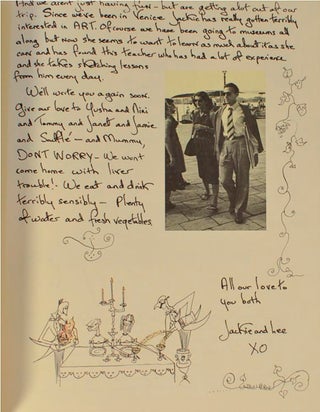 And we aren't just having fun - but are getting alot out of our
trip. Since we've been in Venice Jackie has really gotten terribly
interested in ART. Of course we have been going to museums all
along but now she seems to want to learn as much about it as she
can and has found this teacher who has had a lot of experience
and she takes sketching lessons
from him every day.
We'll write you again soon.
Give our love to Yusha and Nini
and Tommy and Janet and Jamie
and Soufflé - and Mummy,
DONT WORRY - We wont
come home with liver
trouble!. We eat and drink
terribly sensibly - Plenty
of water and fresh vegetables.
All our love to
you both
Jackie and Lee
XO